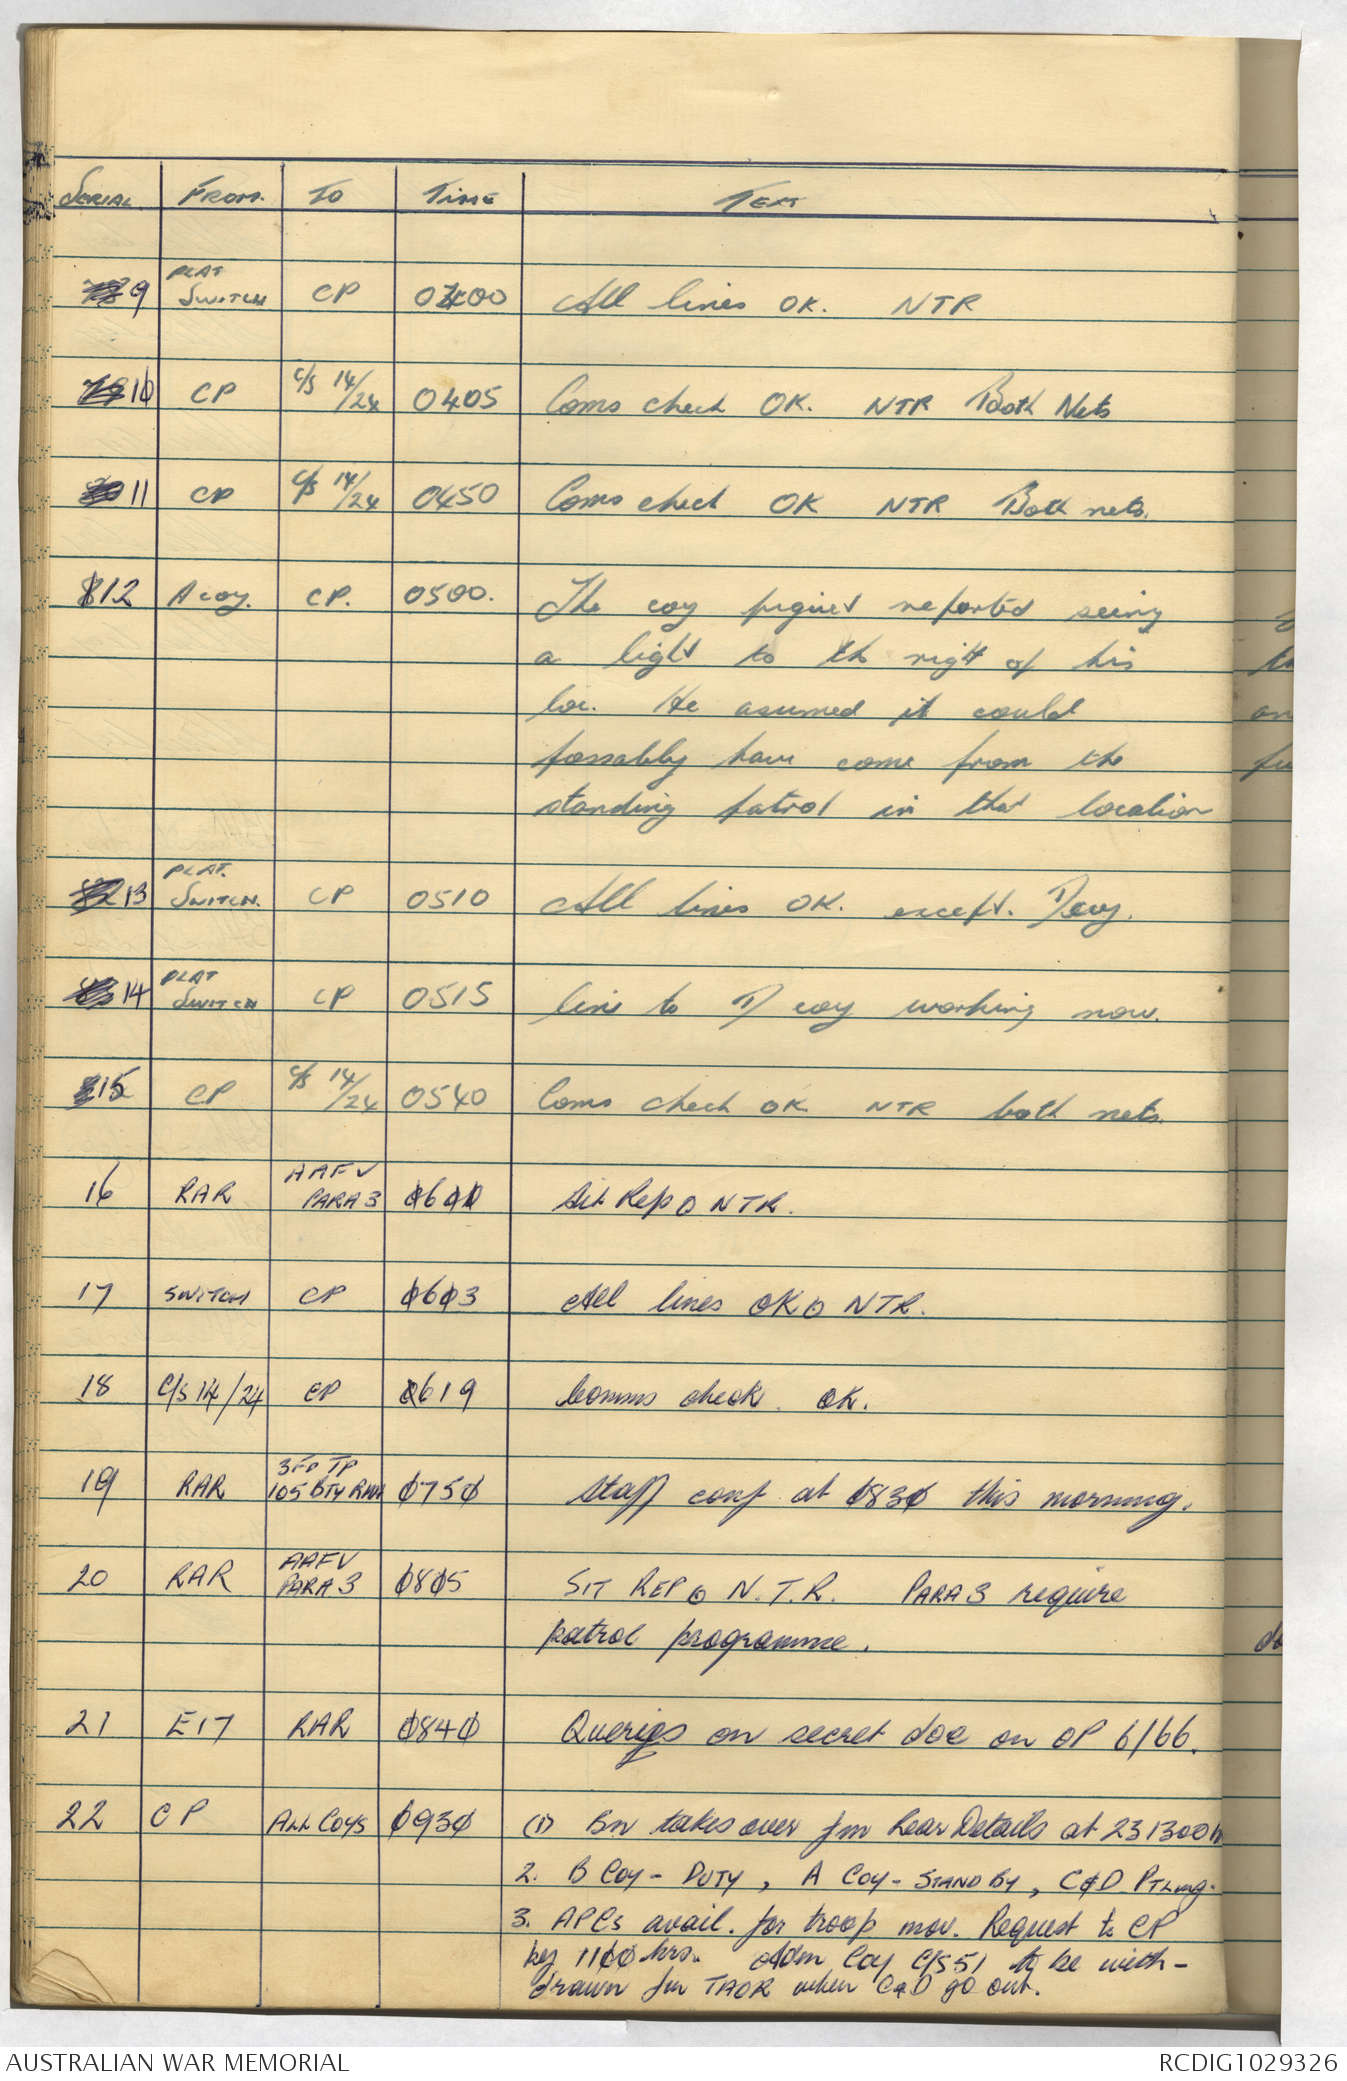 SERIAL FROM. TO TIME TEXT
9 PLAT SWITCH CP 0400 All lines OK. NTR
10 CP C/S 14/24 0405 Coms check OK. NTR Both Nets
11 CP C/S 14/24 0450 Coms check OK NTR Both nets.
12 A coy. CP. 0500. The coy piquet reported seeing
a light to the right of his
loc. He asumed it could
possably have come from the
standing patrol in that location
13 PLAT. SWITCH. CP 0510 All lines OK. except. D coy.
14 PLAT SWITCH CP 0515 line to D coy working now.
15 CP C/S 14/24 0540 Coms check OK NTR both nets.
16 RAR AAFV PARA 3 0600 Sit Rep NTR.
17 SWITCH CP 0603 All lines OK NTR.
18 C/S 14/24 CP 0619 Comms check. OK.
19 RAR 3 FD TP 105 BTY RAA 0750 Staff conf at 0830 this morning.
20 RAR AAFV PARA 3 0805 SIT REP N.T.R. PARA 3 require
patrol programme.
21 E17 RAR 0840 Queries on secret doc on OP 6/66.
22 CP ALL COYS 0930 (1) Bn takes over fm Rear Details at 231300 h
2. B Coy - DUTY, A COY - STAND BY, C & D PTLing.
3. APCs avail. for troop mov. Request to CP
by 1100 hrs. Adm Coy C/S 51 to be with-
drawn fm TAOR when C & D go out.
AUSTRALIAN WAR MEMORIAL
RCDIG1029326